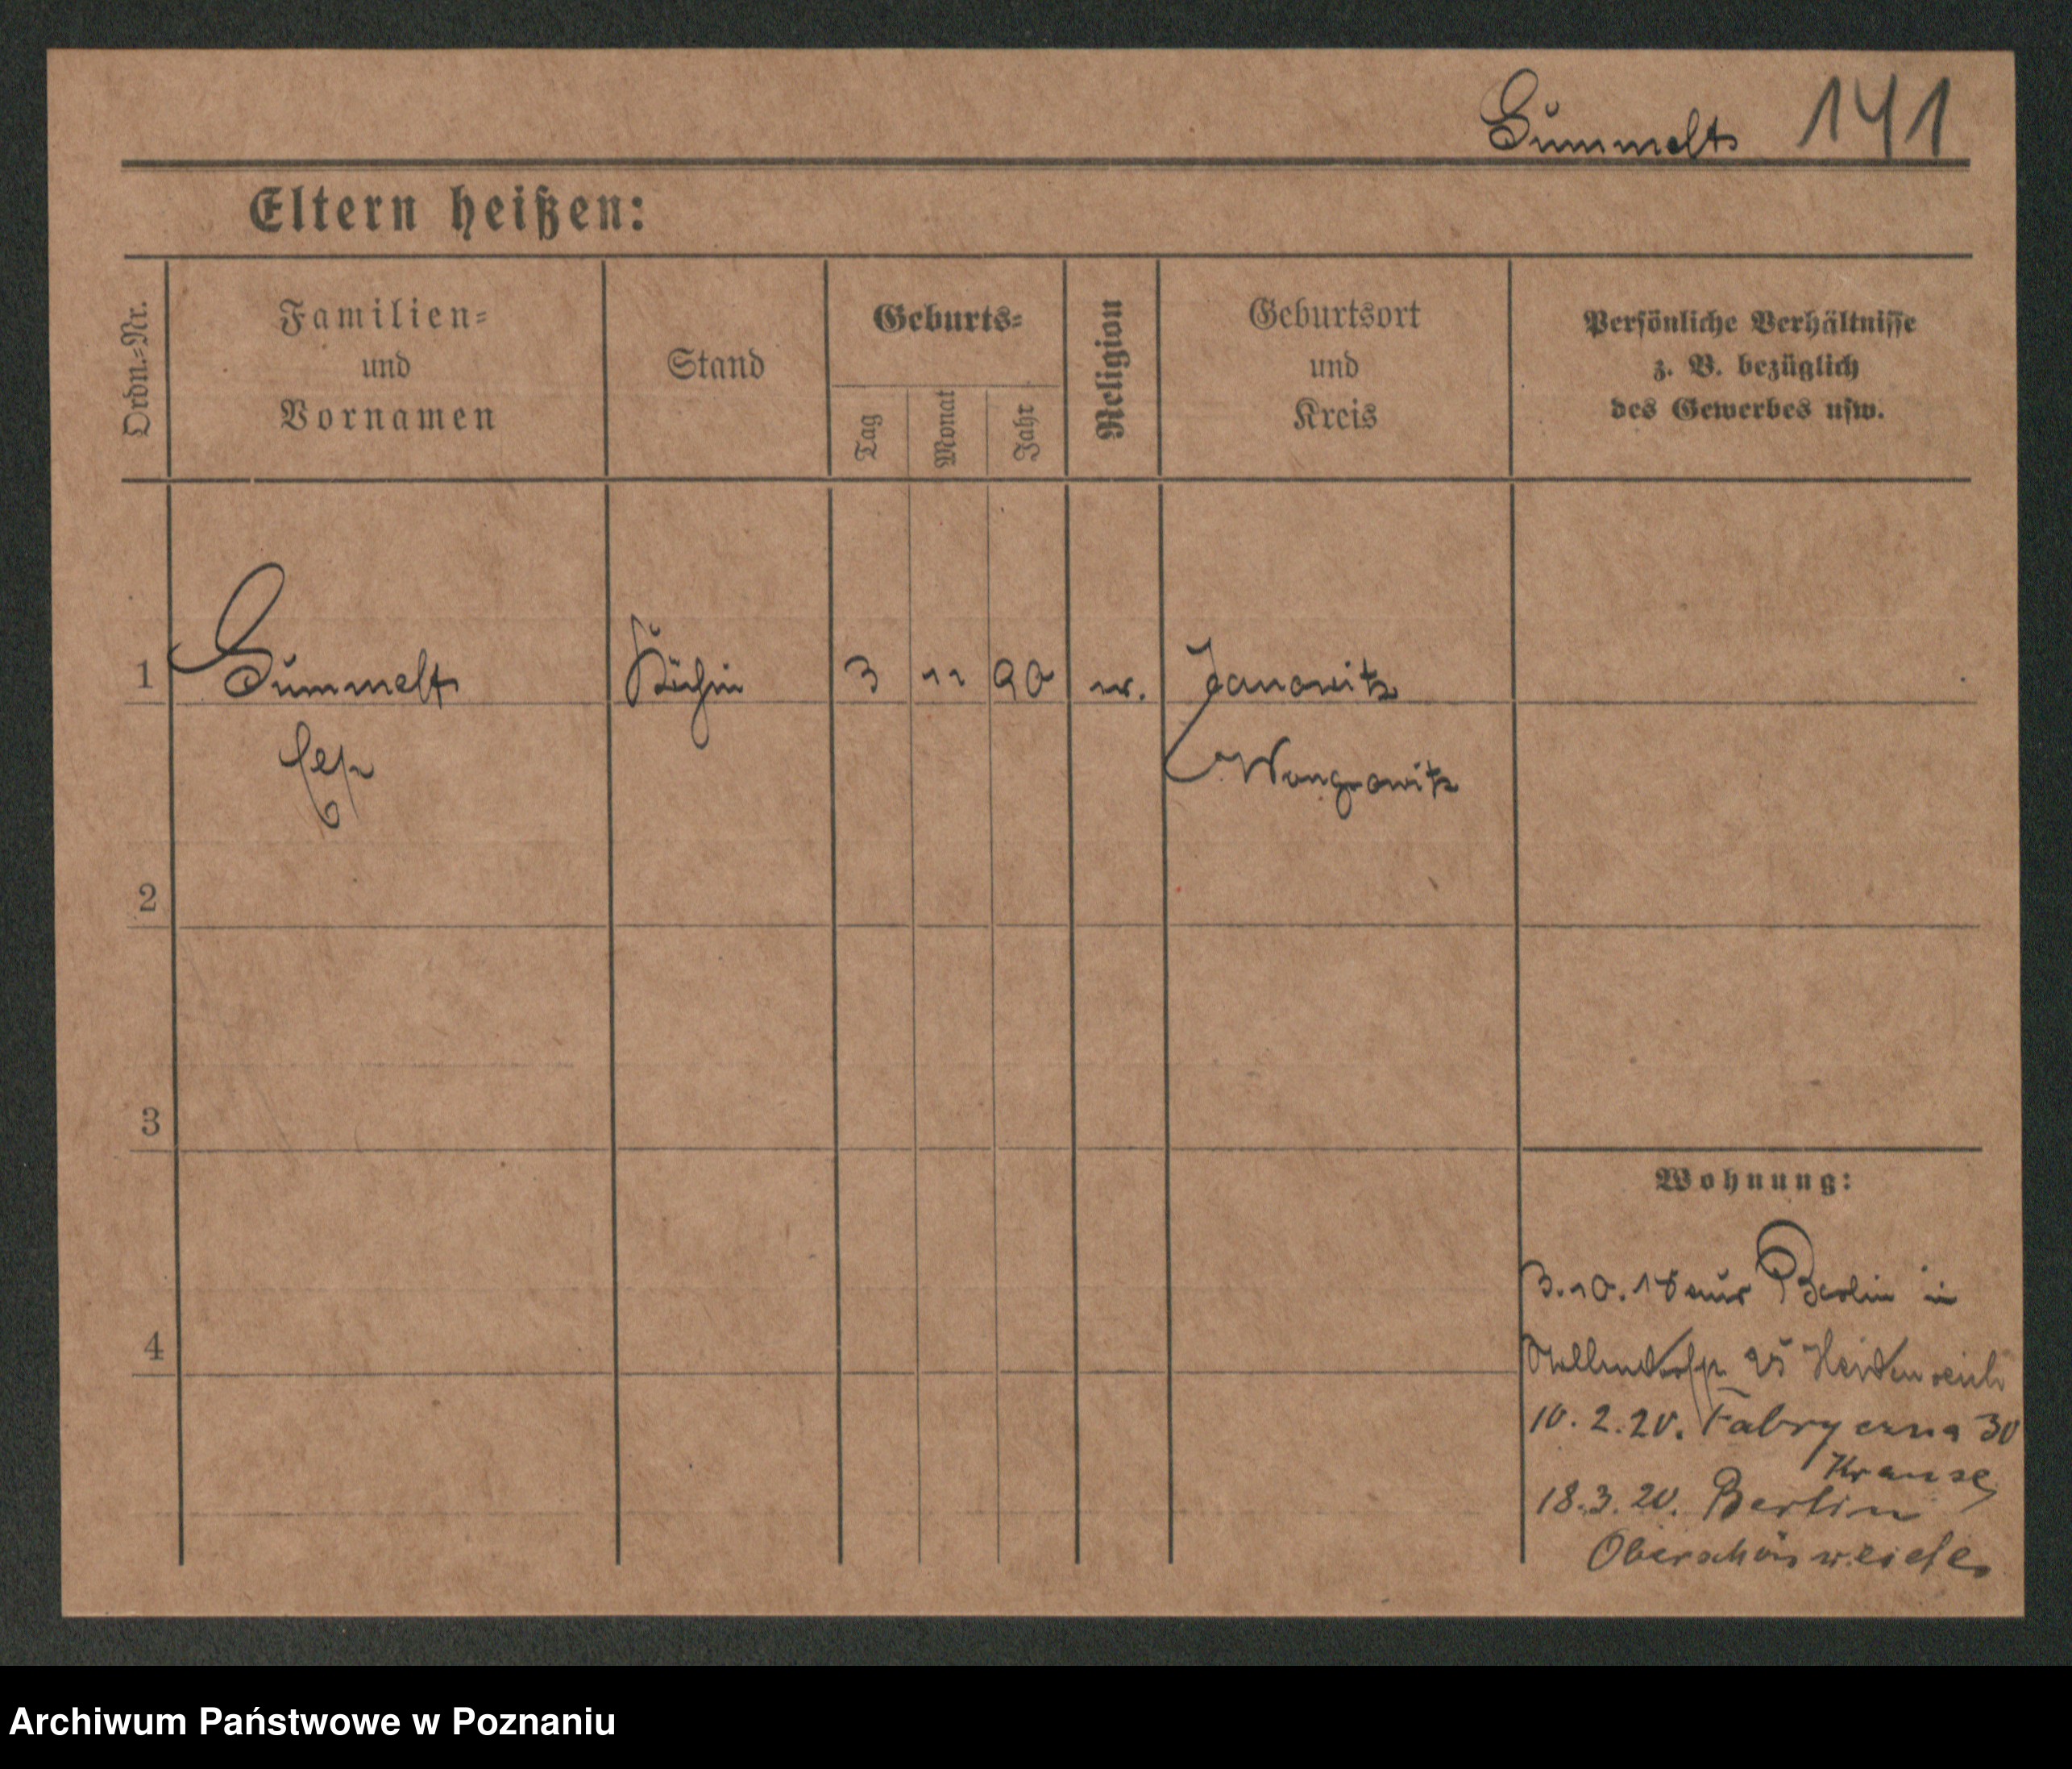 Gummelt 141
Eltern heißen:
Ordn.=Nr.
Familien=
und
Vornamen
Stand
Geburts=
Tag
Monat
Jahr
Religion
Geburtsort
und
Kreis
Persönliche Verhältnisse
z. B. bezüglich
des Gewerbes usw.
1 Gummelt Köchin 3 11 90 Janowitz
Wongrowitz
2
3
Wohnung:
3.10.18 aus Berlin in
4
25 Heidenreich
10.2.20. Fabryczna 30
Krause
18.3.20. Berlin
Oberschönweide
Archiwum Państwowe w Poznaniu